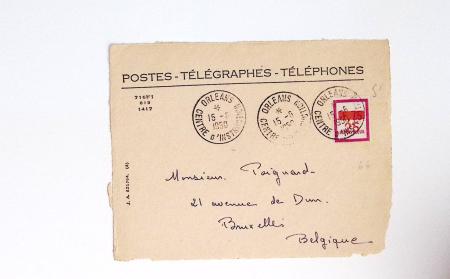 POSTES - TÉLÉGRAPHES - TÉLÉPHONES
716F1
819
1417
ORLEANS
15-6
1950
CENTRE D'INST
ORLEANS
15-6
1950
CENTRE
ORLEANS
CENTRE
Monsieur Poignard
21 avenue de Dun
Bruxelles
Belgique